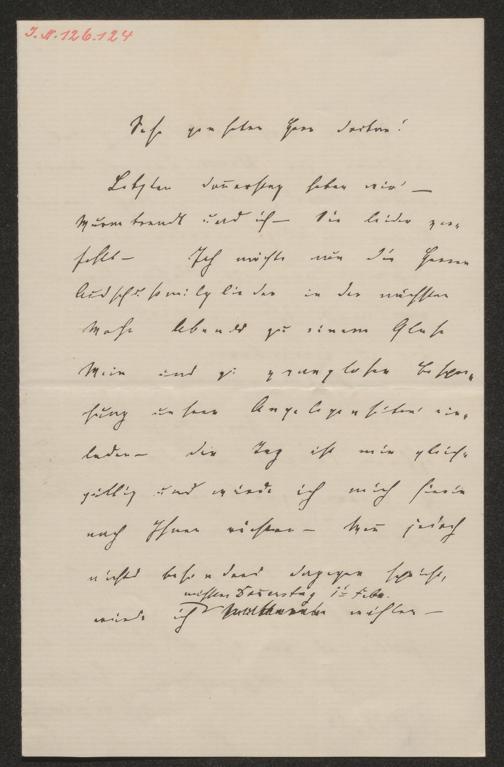 I.N. 126.124
Sehr geehrter Herr Doctor!
Letzten Donnerstag haben wir –
Wurmbrandt und ich – Sie leider ver-
fehlt – Ich möchte nun die Herren
Ausschußmitglieder in der nächsten
Woche Abends zu einem Glase
Wein und zu zwangloser Bespre-
chung unserer Angelegenheiten ein-
laden – der Tag ist mir gleich-
giltig und würde ich mich hierin
nach Ihnen richten – Wenn jedoch
nichts besonders dagegen spricht,
nächsten Donnerstag 1. Febr.
würde ich wählen –